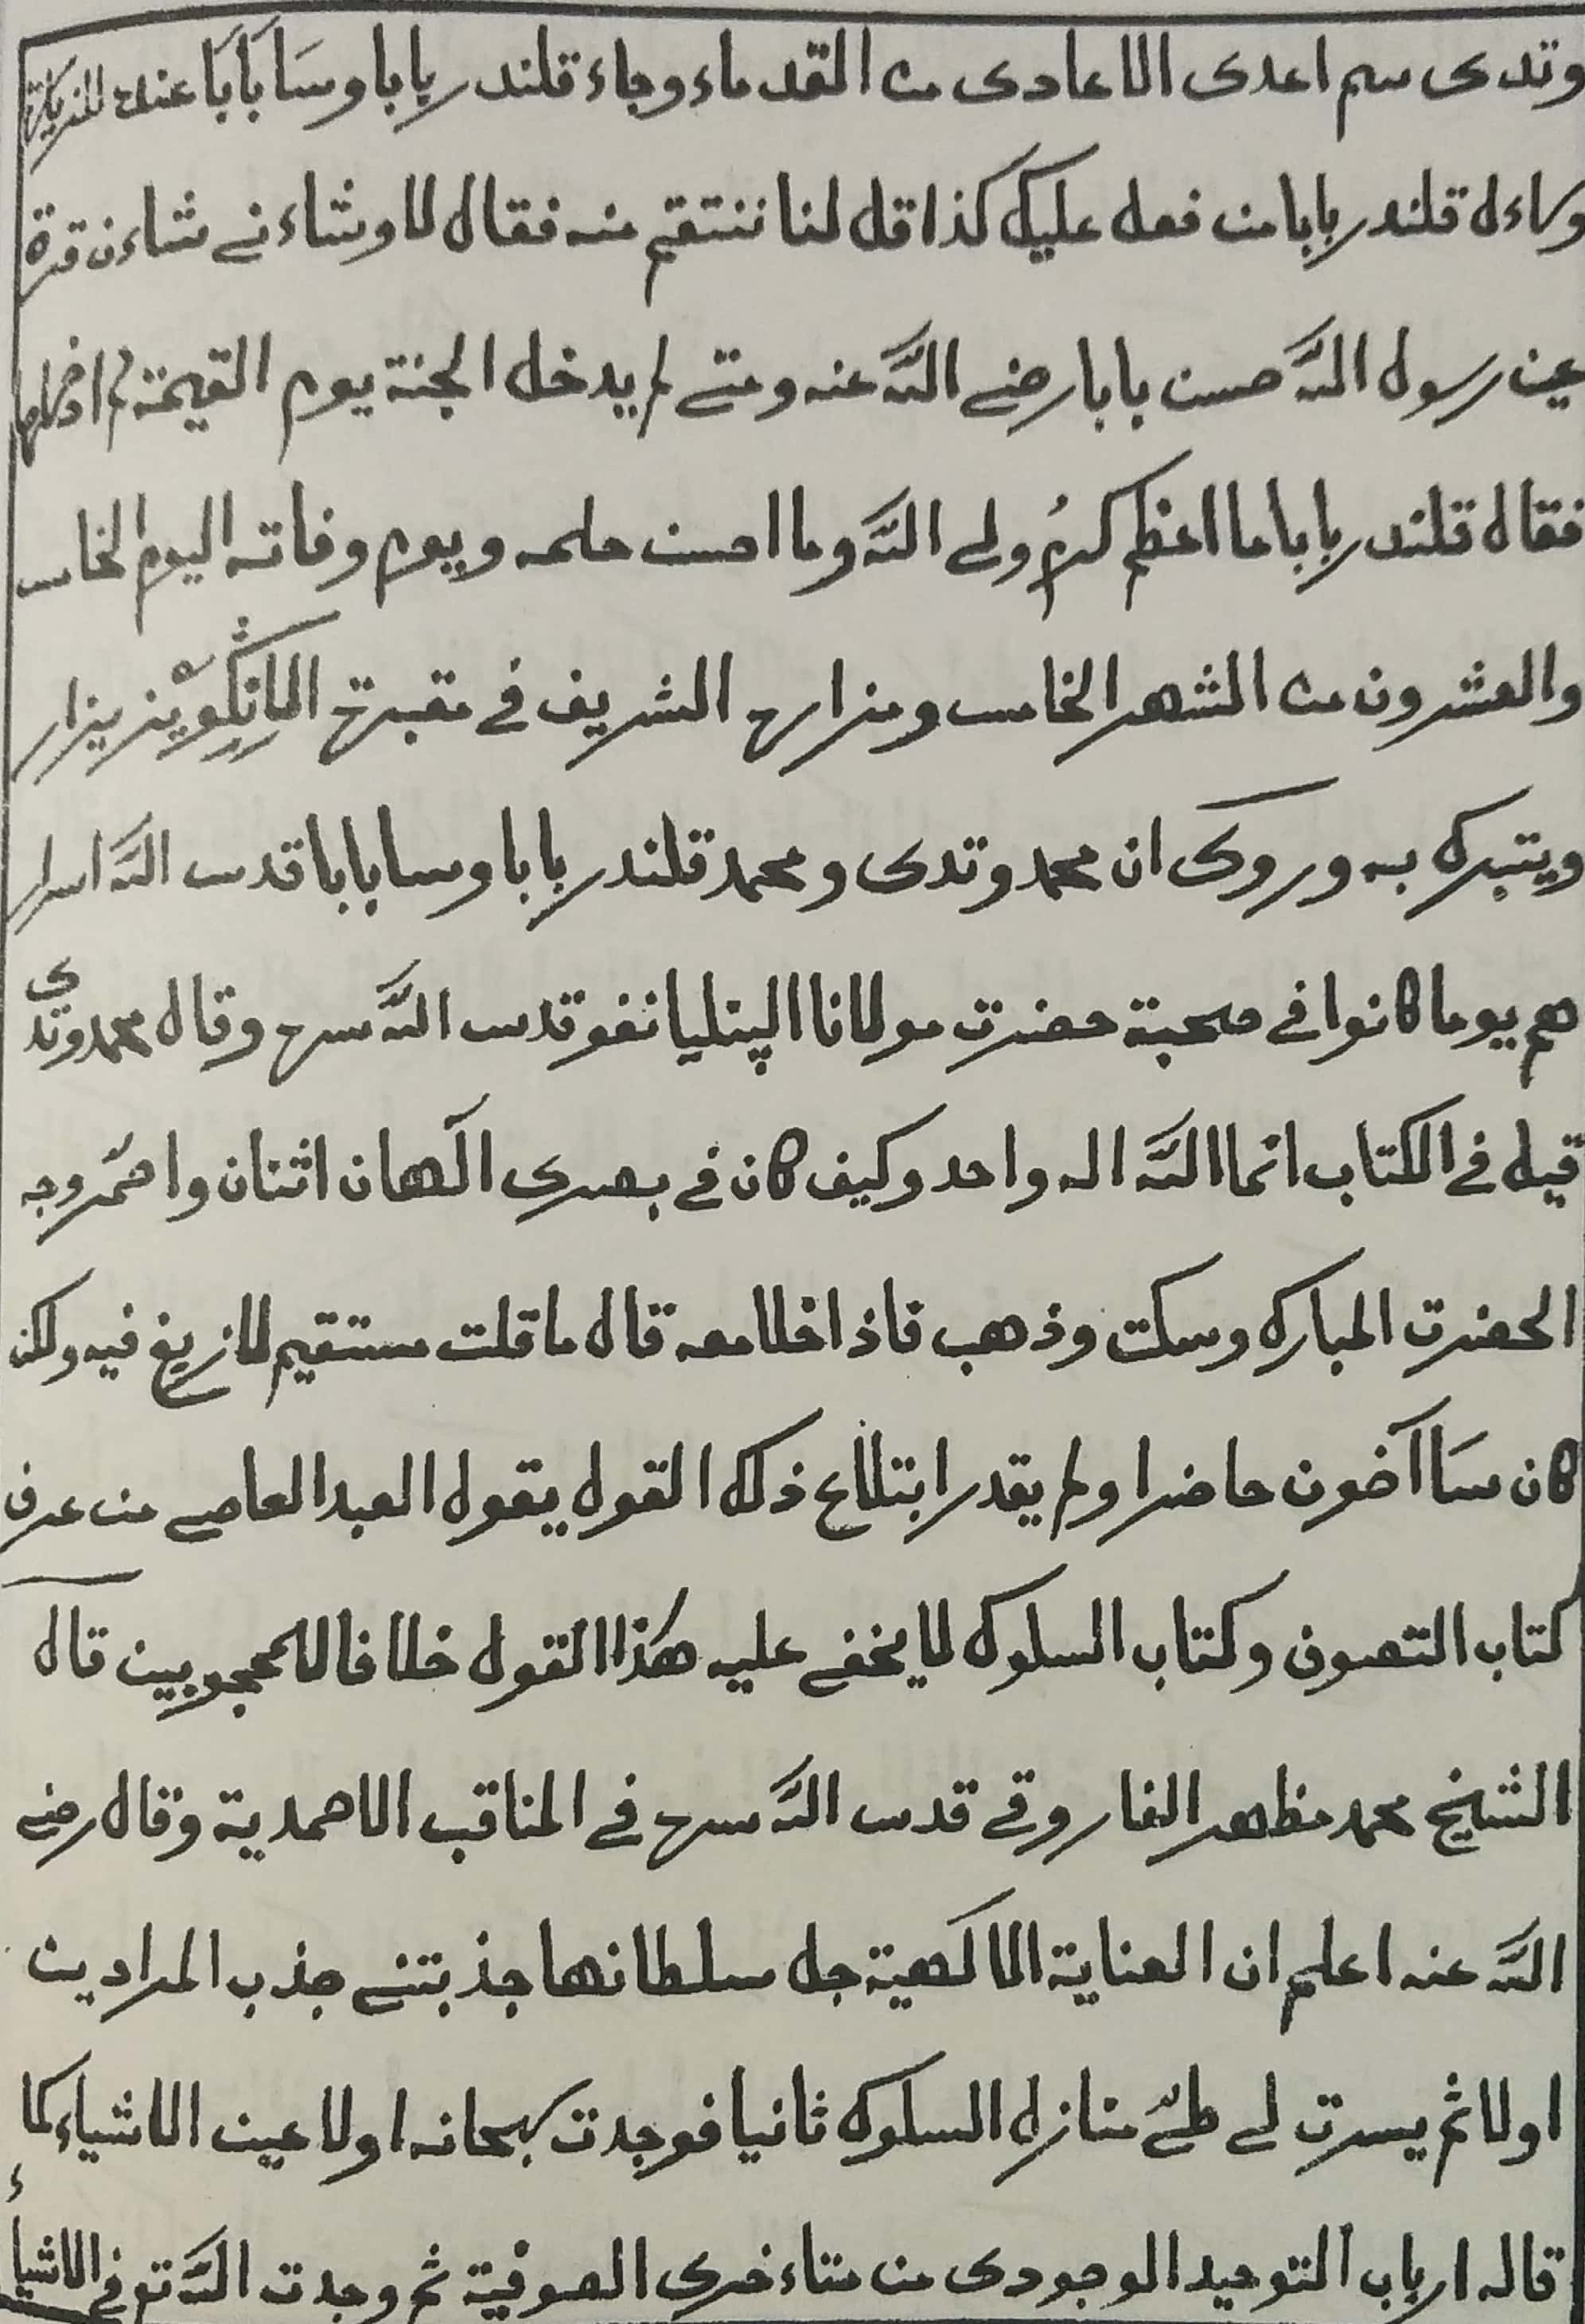 وتدى سم اعدى الاعادى من القدماء وجاء قلندر بابا وسَابَابَا عنده للزيارة
وساءل قلندر بابا من فعل عليك كذا قل لنا ننتقم منه فقال لا وشاءنے شاءن قرة
عين رسول اللّٰه حسن بابا رضے اللّٰه عنه ومتے لم يدخل الجنة يوم القيمة لم ادخلها
فقال قلندر بابا ما اعظم كرم ولى اللّٰه وما احسن حلمه ويوم وفاته اليوم الخامس
والعشرون من الشهر الخامس ومزاره الشريف فے مقبرة يزار
ويتبرك به وروى ان محمد وتدى ومحمد قلندر بابا وسا بابا قدس اللّٰه اسرار
هم يوما كانوا فے صحبة حضرت مولانا الپنليانفو قدس اللّٰه سره وقال محمد وتدى
قيل فے الكتاب انما اللّٰه اله واحد وكيف كان فے بصرى الٓهان اثنان واحمّر وجه
الحضرت المبارك وسكت وذهب فاذا خلا معه قال ما قلت مستقيم لا زيغ فيه ولكن
كان سَا آخون حاضرا ولم يقدر ابتلاع ذلك القول يقول العبد العاصے من عرف
كتاب التصوف وكتاب السلوك لا يخفے عليه هكذا القول خلافا للمحجوبين قال
الشيخ محمد مظهر الفاروقے قدس اللّٰه سره فے المناقب الاحمدية وقال رضے
اللّٰه عنه اعلم ان العناية الالٓهية جل سلطانها جذبتنے جذب المرادين
اولا ثم يسرت لے طےّ منازل السلوك ثانيا فوجدت سبحانه اولا عين الاشياء كما
قاله ارباب التوحيد الوجودى من متاءخرى الصوفية ثم وجدت اللّٰه تع فے الاشياء